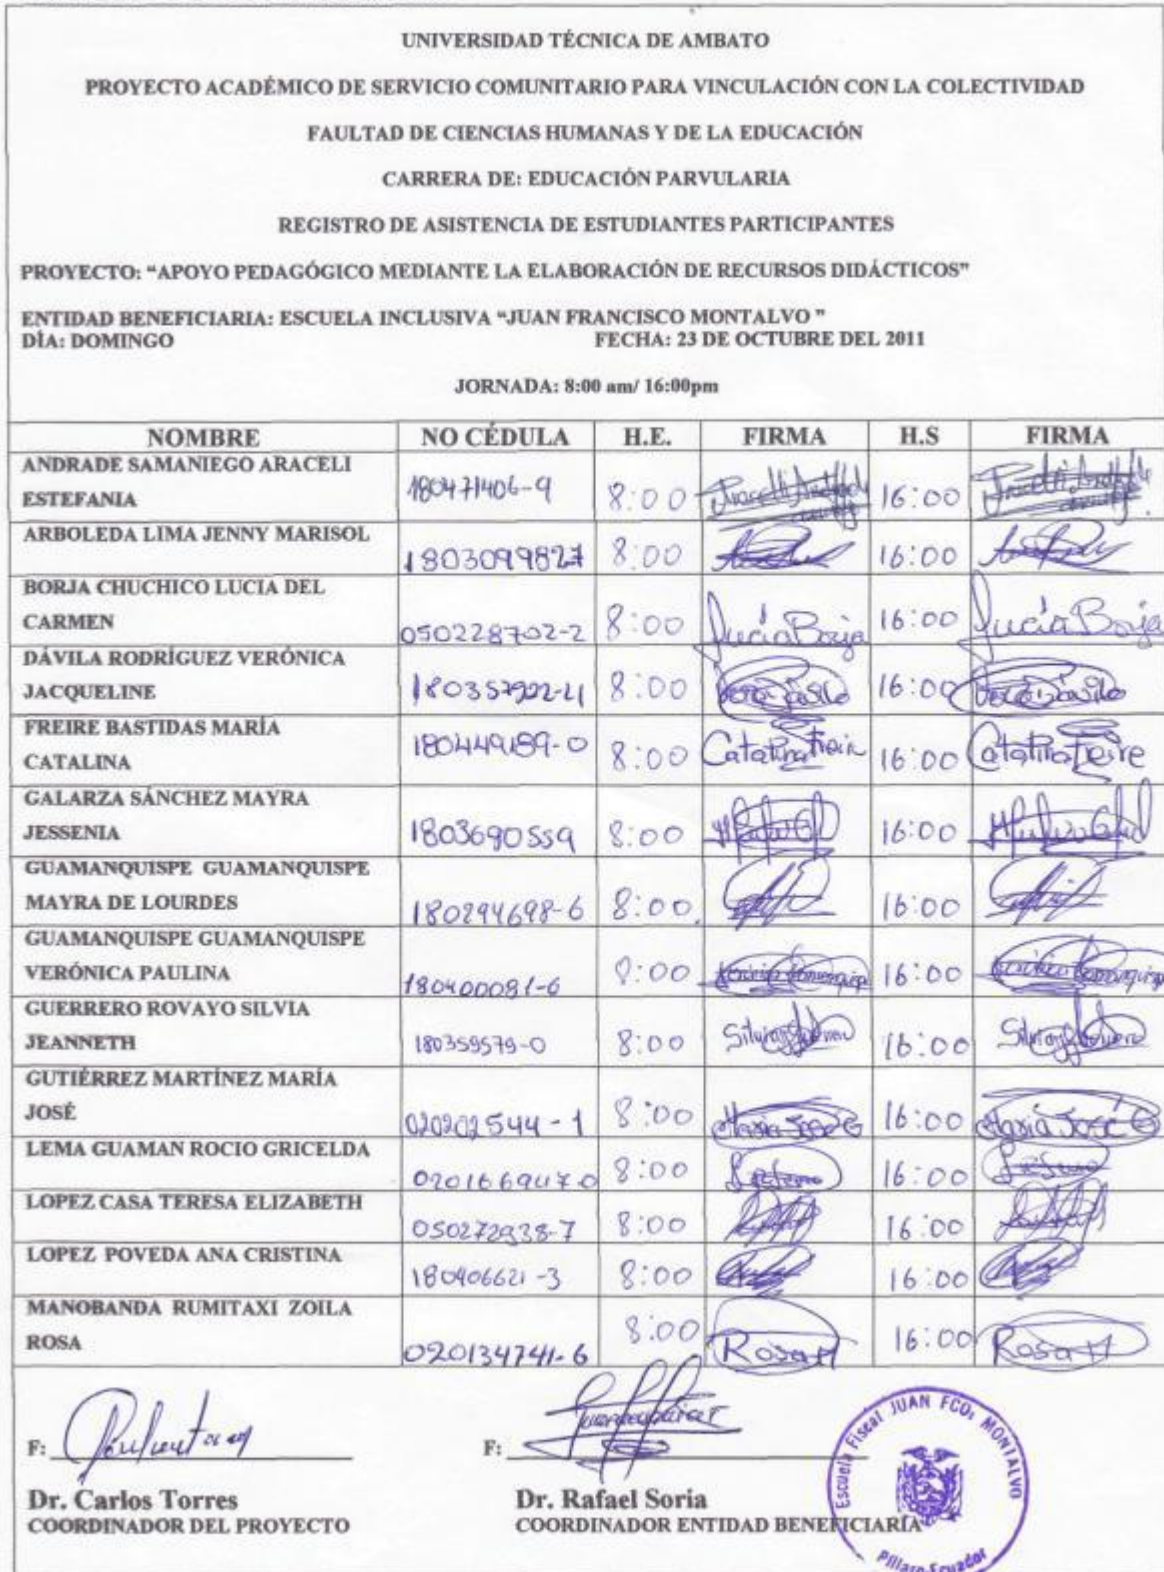 UNIVERSIDAD TÉCNICA DE AMBATO
PROYECTO ACADÉMICO DE SERVICIO COMUNITARIO PARA VINCULACIÓN CON LA COLECTIVIDAD
FAULTAD DE CIENCIAS HUMANAS Y DE LA EDUCACIÓN
CARRERA DE: EDUCACIÓN PARVULARIA
REGISTRO DE ASISTENCIA DE ESTUDIANTES PARTICIPANTES
PROYECTO: “APOYO PEDAGÓGICO MEDIANTE LA ELABORACIÓN DE RECURSOS DIDÁCTICOS”
ENTIDAD BENEFICIARIA: ESCUELA INCLUSIVA “JUAN FRANCISCO MONTALVO ”
DÍA: DOMINGO FECHA: 23 DE OCTUBRE DEL 2011
JORNADA: 8:00 am/ 16:00pm
NOMBRE NO CÉDULA H.E. FIRMA H.S FIRMA
ANDRADE SAMANIEGO ARACELI
ESTEFANIA 180471406-9 8:00 16:00
ARBOLEDA LIMA JENNY MARISOL
1803099827 8:00 16:00
BORJA CHUCHICO LUCIA DEL
CARMEN 050228702-2 8:00 Lucía Borja 16:00 Lucía Borja
DÁVILA RODRÍGUEZ VERÓNICA
JACQUELINE 8:00 16:00
FREIRE BASTIDAS MARÍA
CATALINA 180449189-0 8:00 Catalina Freire 16:00 Catalina Freire
GALARZA SÁNCHEZ MAYRA
JESSENIA 1803690559 8:00 16:00
GUAMANQUISPE GUAMANQUISPE
MAYRA DE LOURDES 180294698-6 8:00 16:00
GUAMANQUISPE GUAMANQUISPE
VERÓNICA PAULINA 180400081-6 8:00 16:00
GUERRERO ROVAYO SILVIA
JEANNETH 180359579-0 8:00 16:00
GUTIÉRREZ MARTÍNEZ MARÍA
JOSÉ 020202544-1 8:00 María José G 16:00 María José G
LEMA GUAMAN ROCIO GRICELDA
020166947-0 8:00 16:00
LOPEZ CASA TERESA ELIZABETH
050272938-7 8:00 16:00
LOPEZ POVEDA ANA CRISTINA
180406621-3 8:00 16:00
MANOBANDA RUMITAXI ZOILA
ROSA 020134741-6 8:00 Rosa M 16:00 Rosa M
F: F:
Dr. Carlos Torres Dr. Rafael Soria
COORDINADOR DEL PROYECTO COORDINADOR ENTIDAD BENEFICIARIA
Escuela Fiscal JUAN FCO. MONTALVO
Píllaro-Ecuador